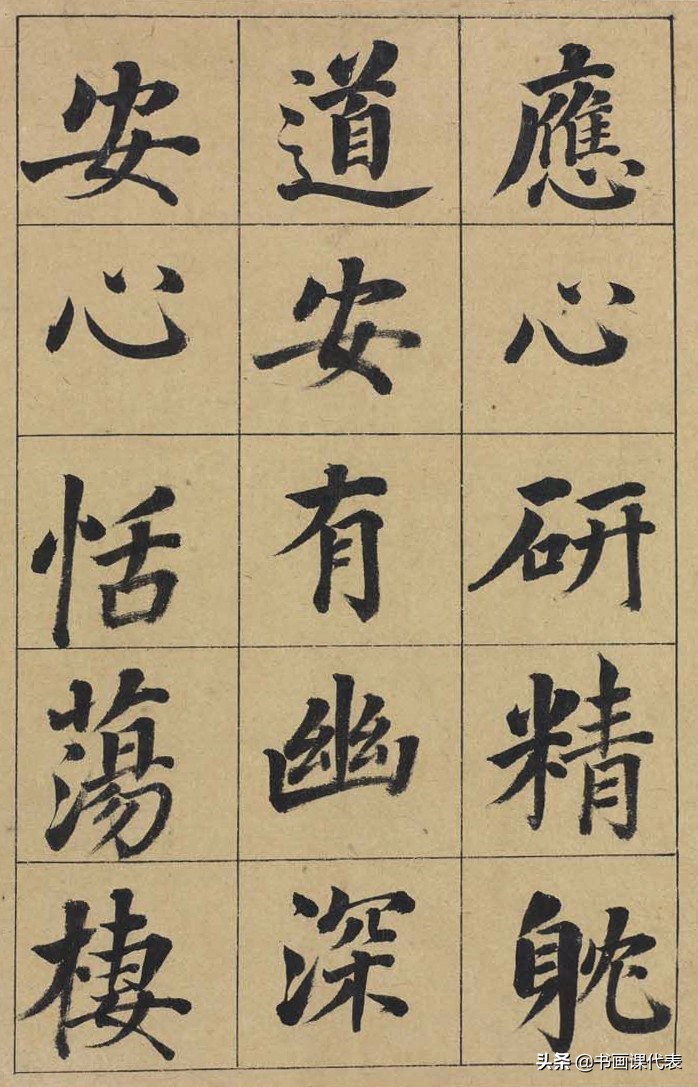 應心研精躭
道安有幽深
安心恬蕩棲
头条 @书画课代表